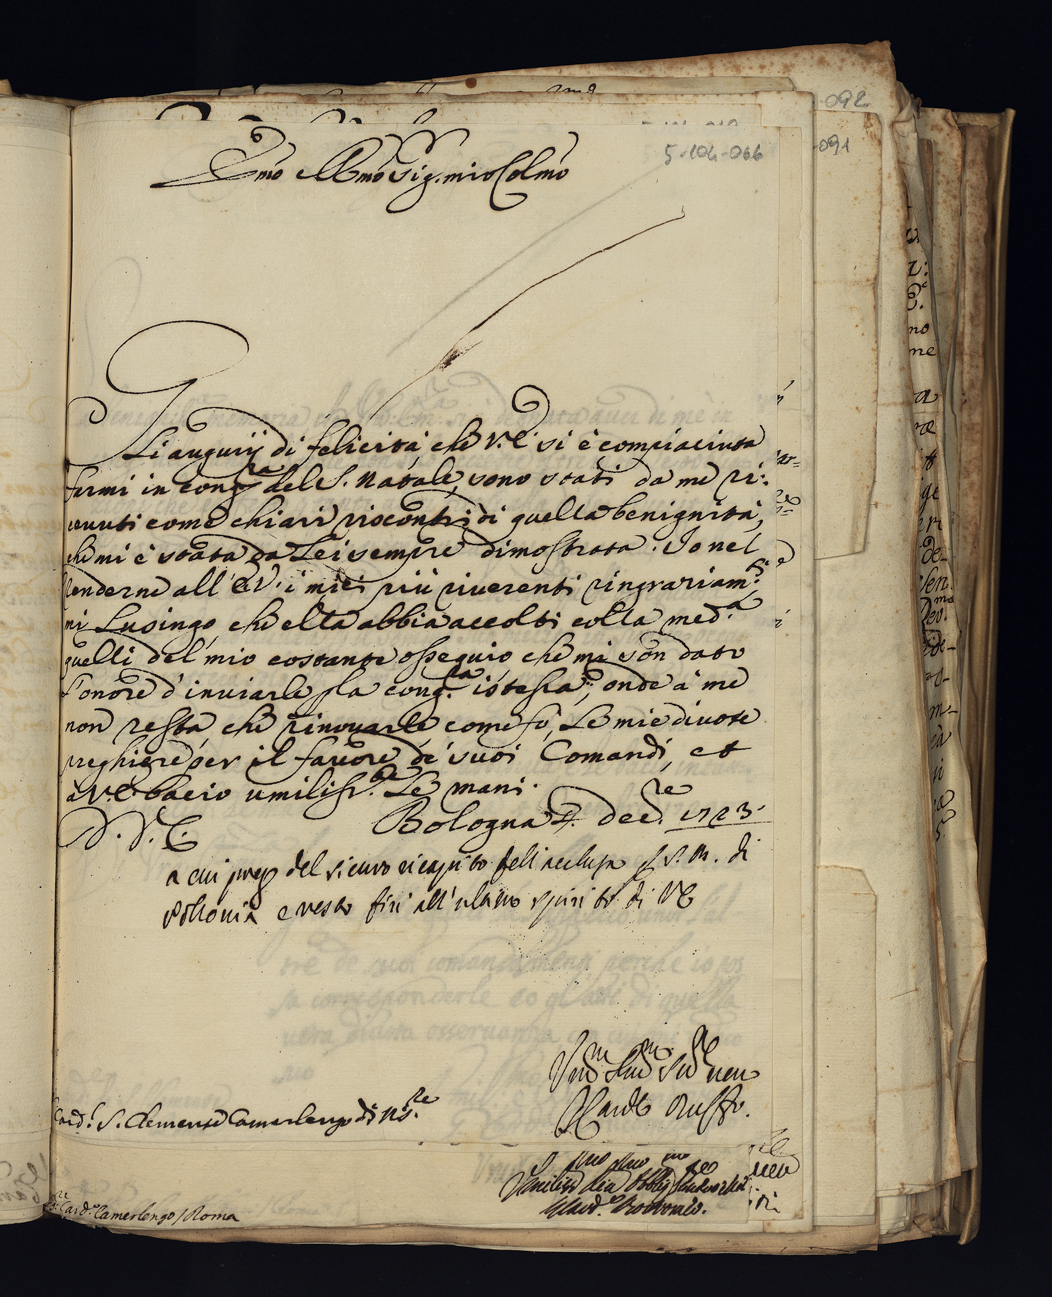 5-104-066
-092
-091
Emo e Rmo Sig. mio Colmo
Gli augurij di felicità, che V. E. si è compiaciuta
farmi in cong.ra del S. Natale, sono stati da me ri-
cevuti come chiari riscontri di quella benignità,
che mi è stata da Lei sempre dimostrata. Io nel
renderne all' E.V. i miei più riverenti ringraziam.ti
mi Lusingo, che ella abbia accolti colla med.a
quelli del mio costante ossequio che mi son dato
l'onore d'inviarle p la cong.ra istessa; onde à me
non resta che rinovarle come fò, Le mie divote
preghiere per il favore de' suoi Comandi, et
à V.E. bacio umiliss.e Le mani.
Bologna Xbre 1723.
D. V. E.
a cui prego del sicuro ricapito dell'acclusa p S. M. di
Pollonia e resto fin all'ultimo spirito di VE
Card.l S. Clemente Camerlengo di N. S.re
Card. Ruffo.
Card. Camerlengo / Roma